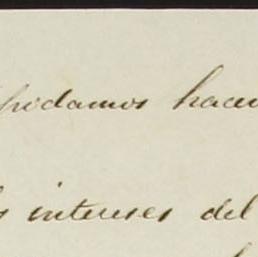 podamos hacer
intereses del